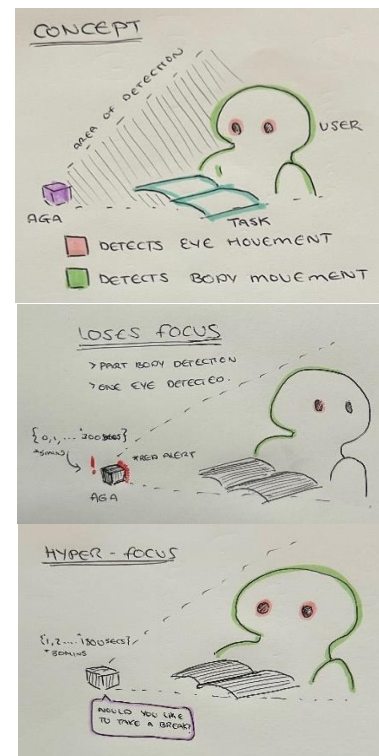 CONCEPT
AREA OF DETECTION
USER
AGA
TASK
DETECTS EYE MOVEMENT
DETECTS BODY MOVEMENT
LOSES FOCUS
> PART BODY DETECTION
> ONE EYE DETECTED.
{0,1,... 300secs}
*5mins
! *RED ALERT
AGA
HYPER - FOCUS
{1,2.... 1800secs}
*30mins
WOULD YOU LIKE
TO TAKE A BREAK?